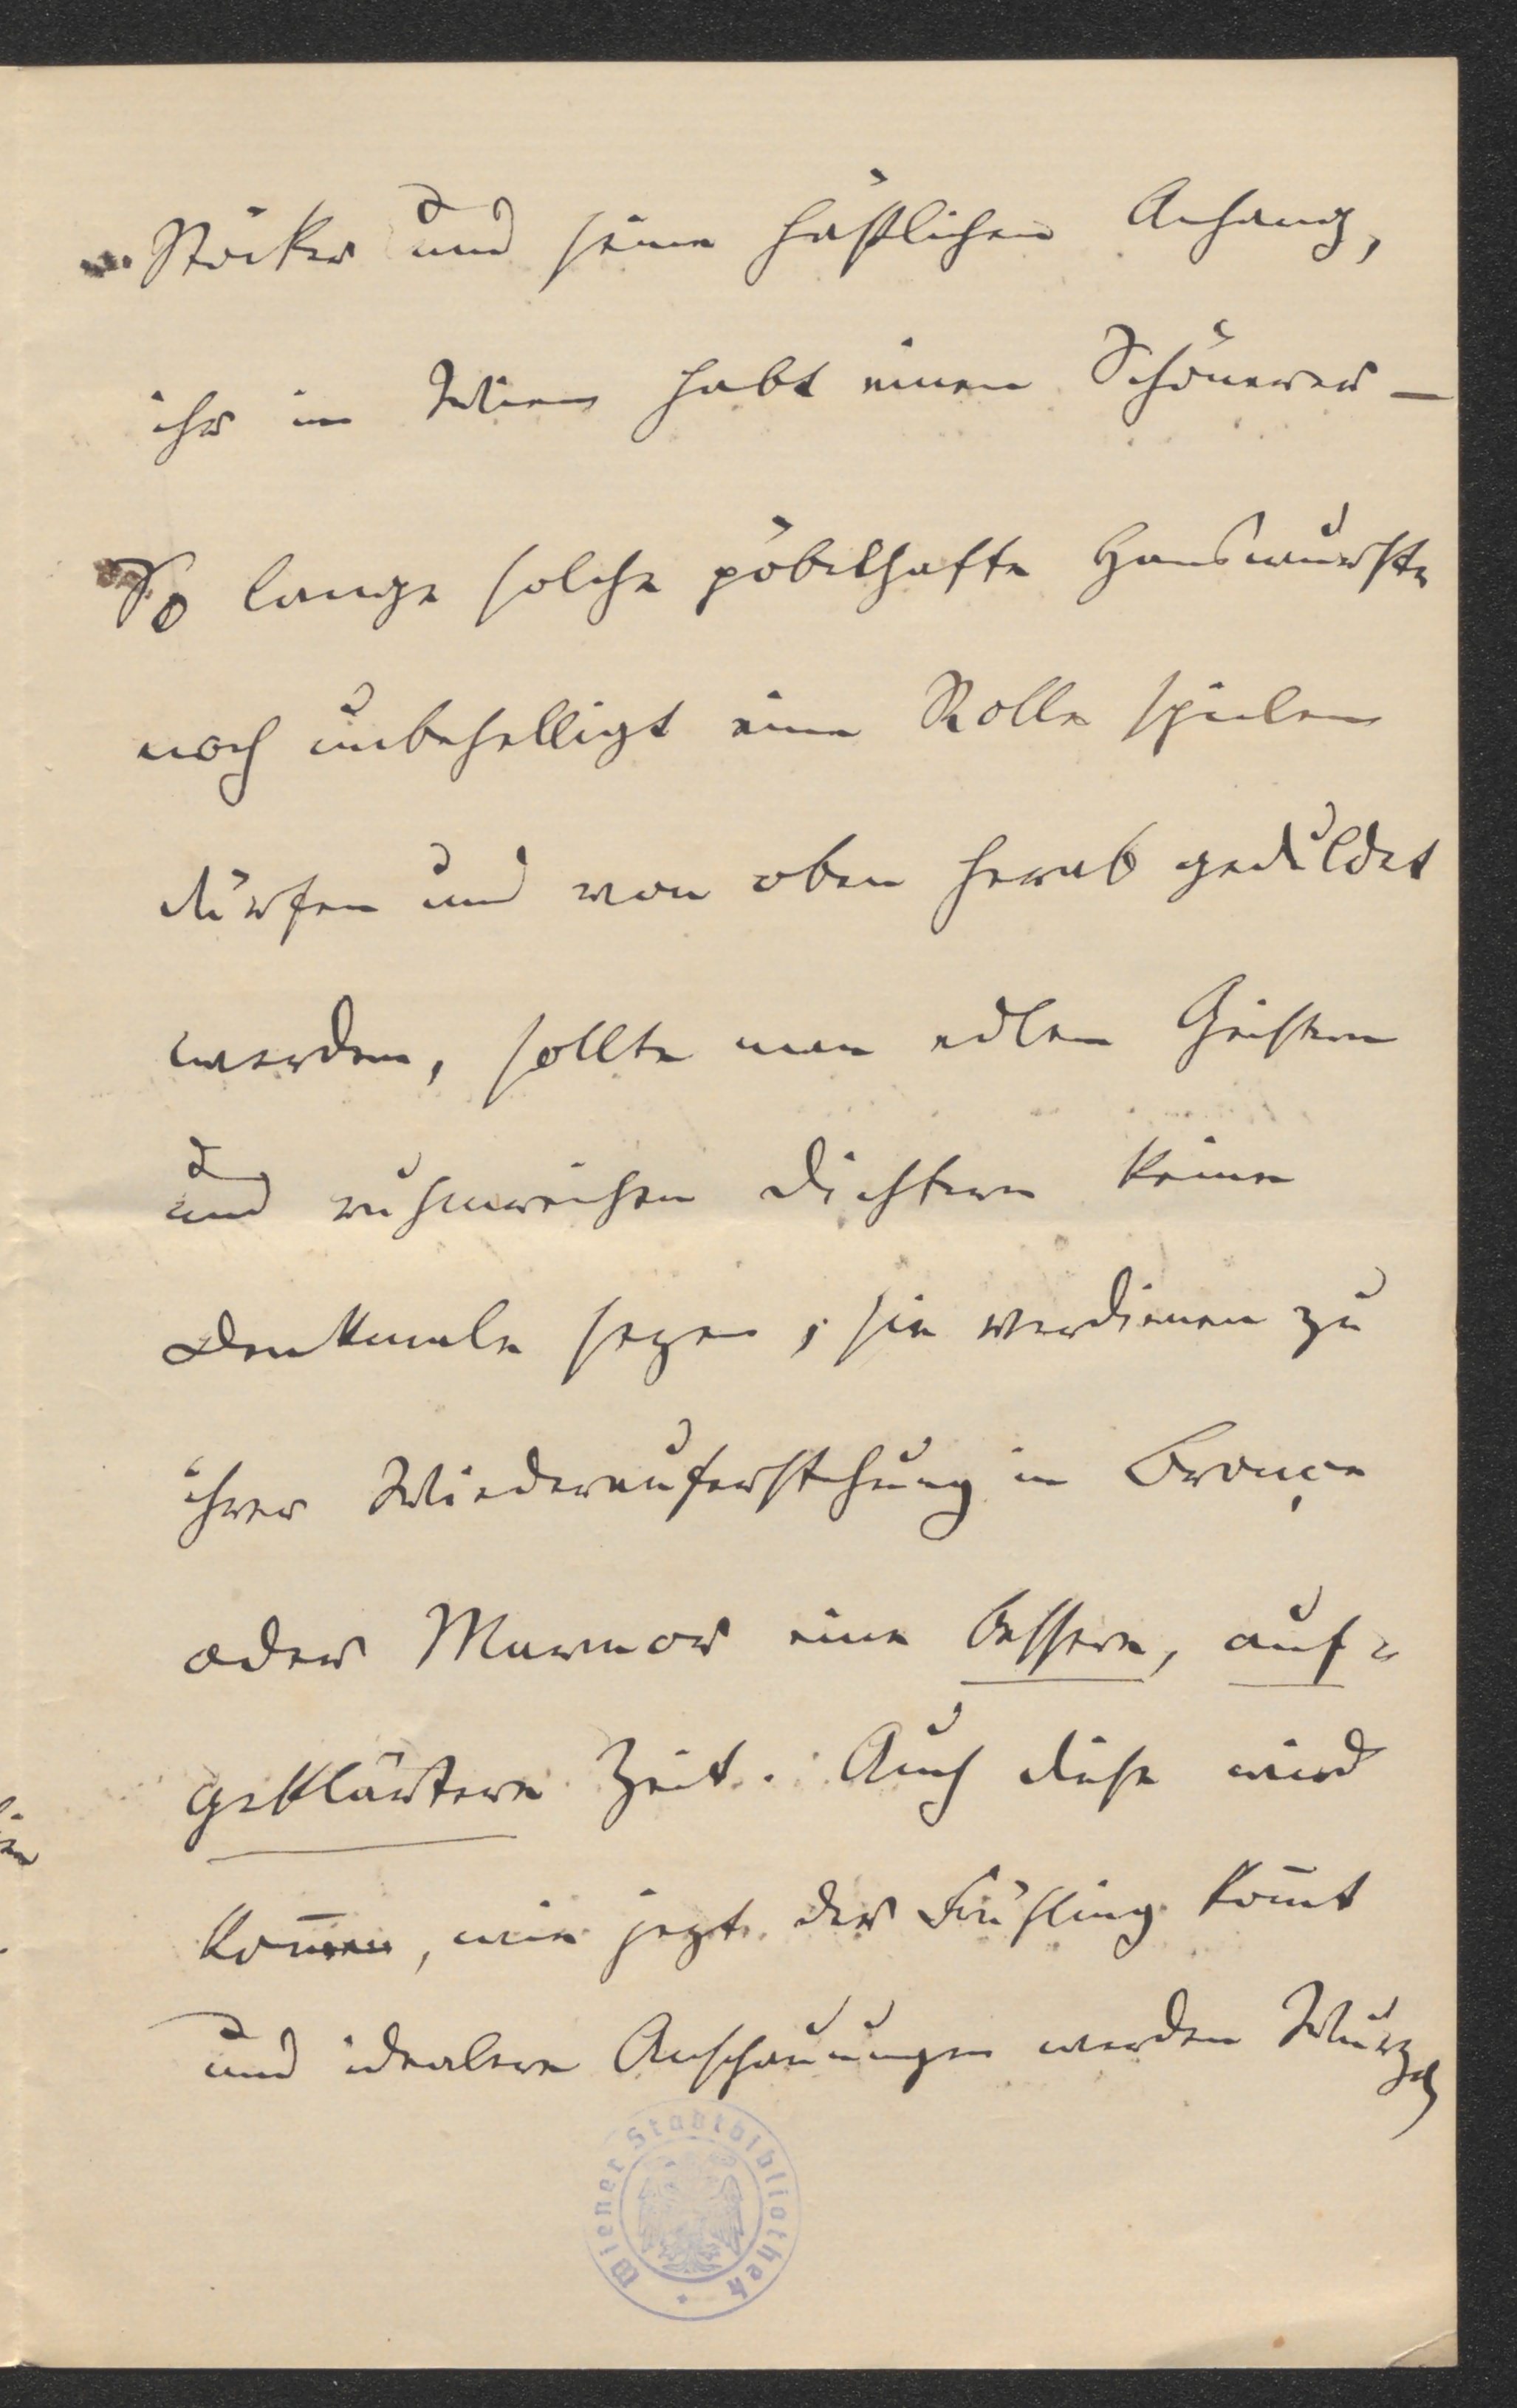 Stöcker und seinen häßlichen Anhang,
ihr in Wien habt einen Schönerer —
So lange solche pöbelhafte Hanswurste
noch unbehelligt eine Rolle spielen
dürfen und von oben herab geduldet
werden, sollte man edlen Geistern
und ruhmreichen Dichtern keine
Denkmale sezen, sie verdienen zu
ihrer Wiederauferstehung in Bronçe
oder Marmor eine bessere, auf-
geklärtere Zeit. Auch diese wird
kom̄en, wie jezt der Frühling kom̄t
und idealere Anschauungen werden Wurzel
Wiener Stadtbibliothek